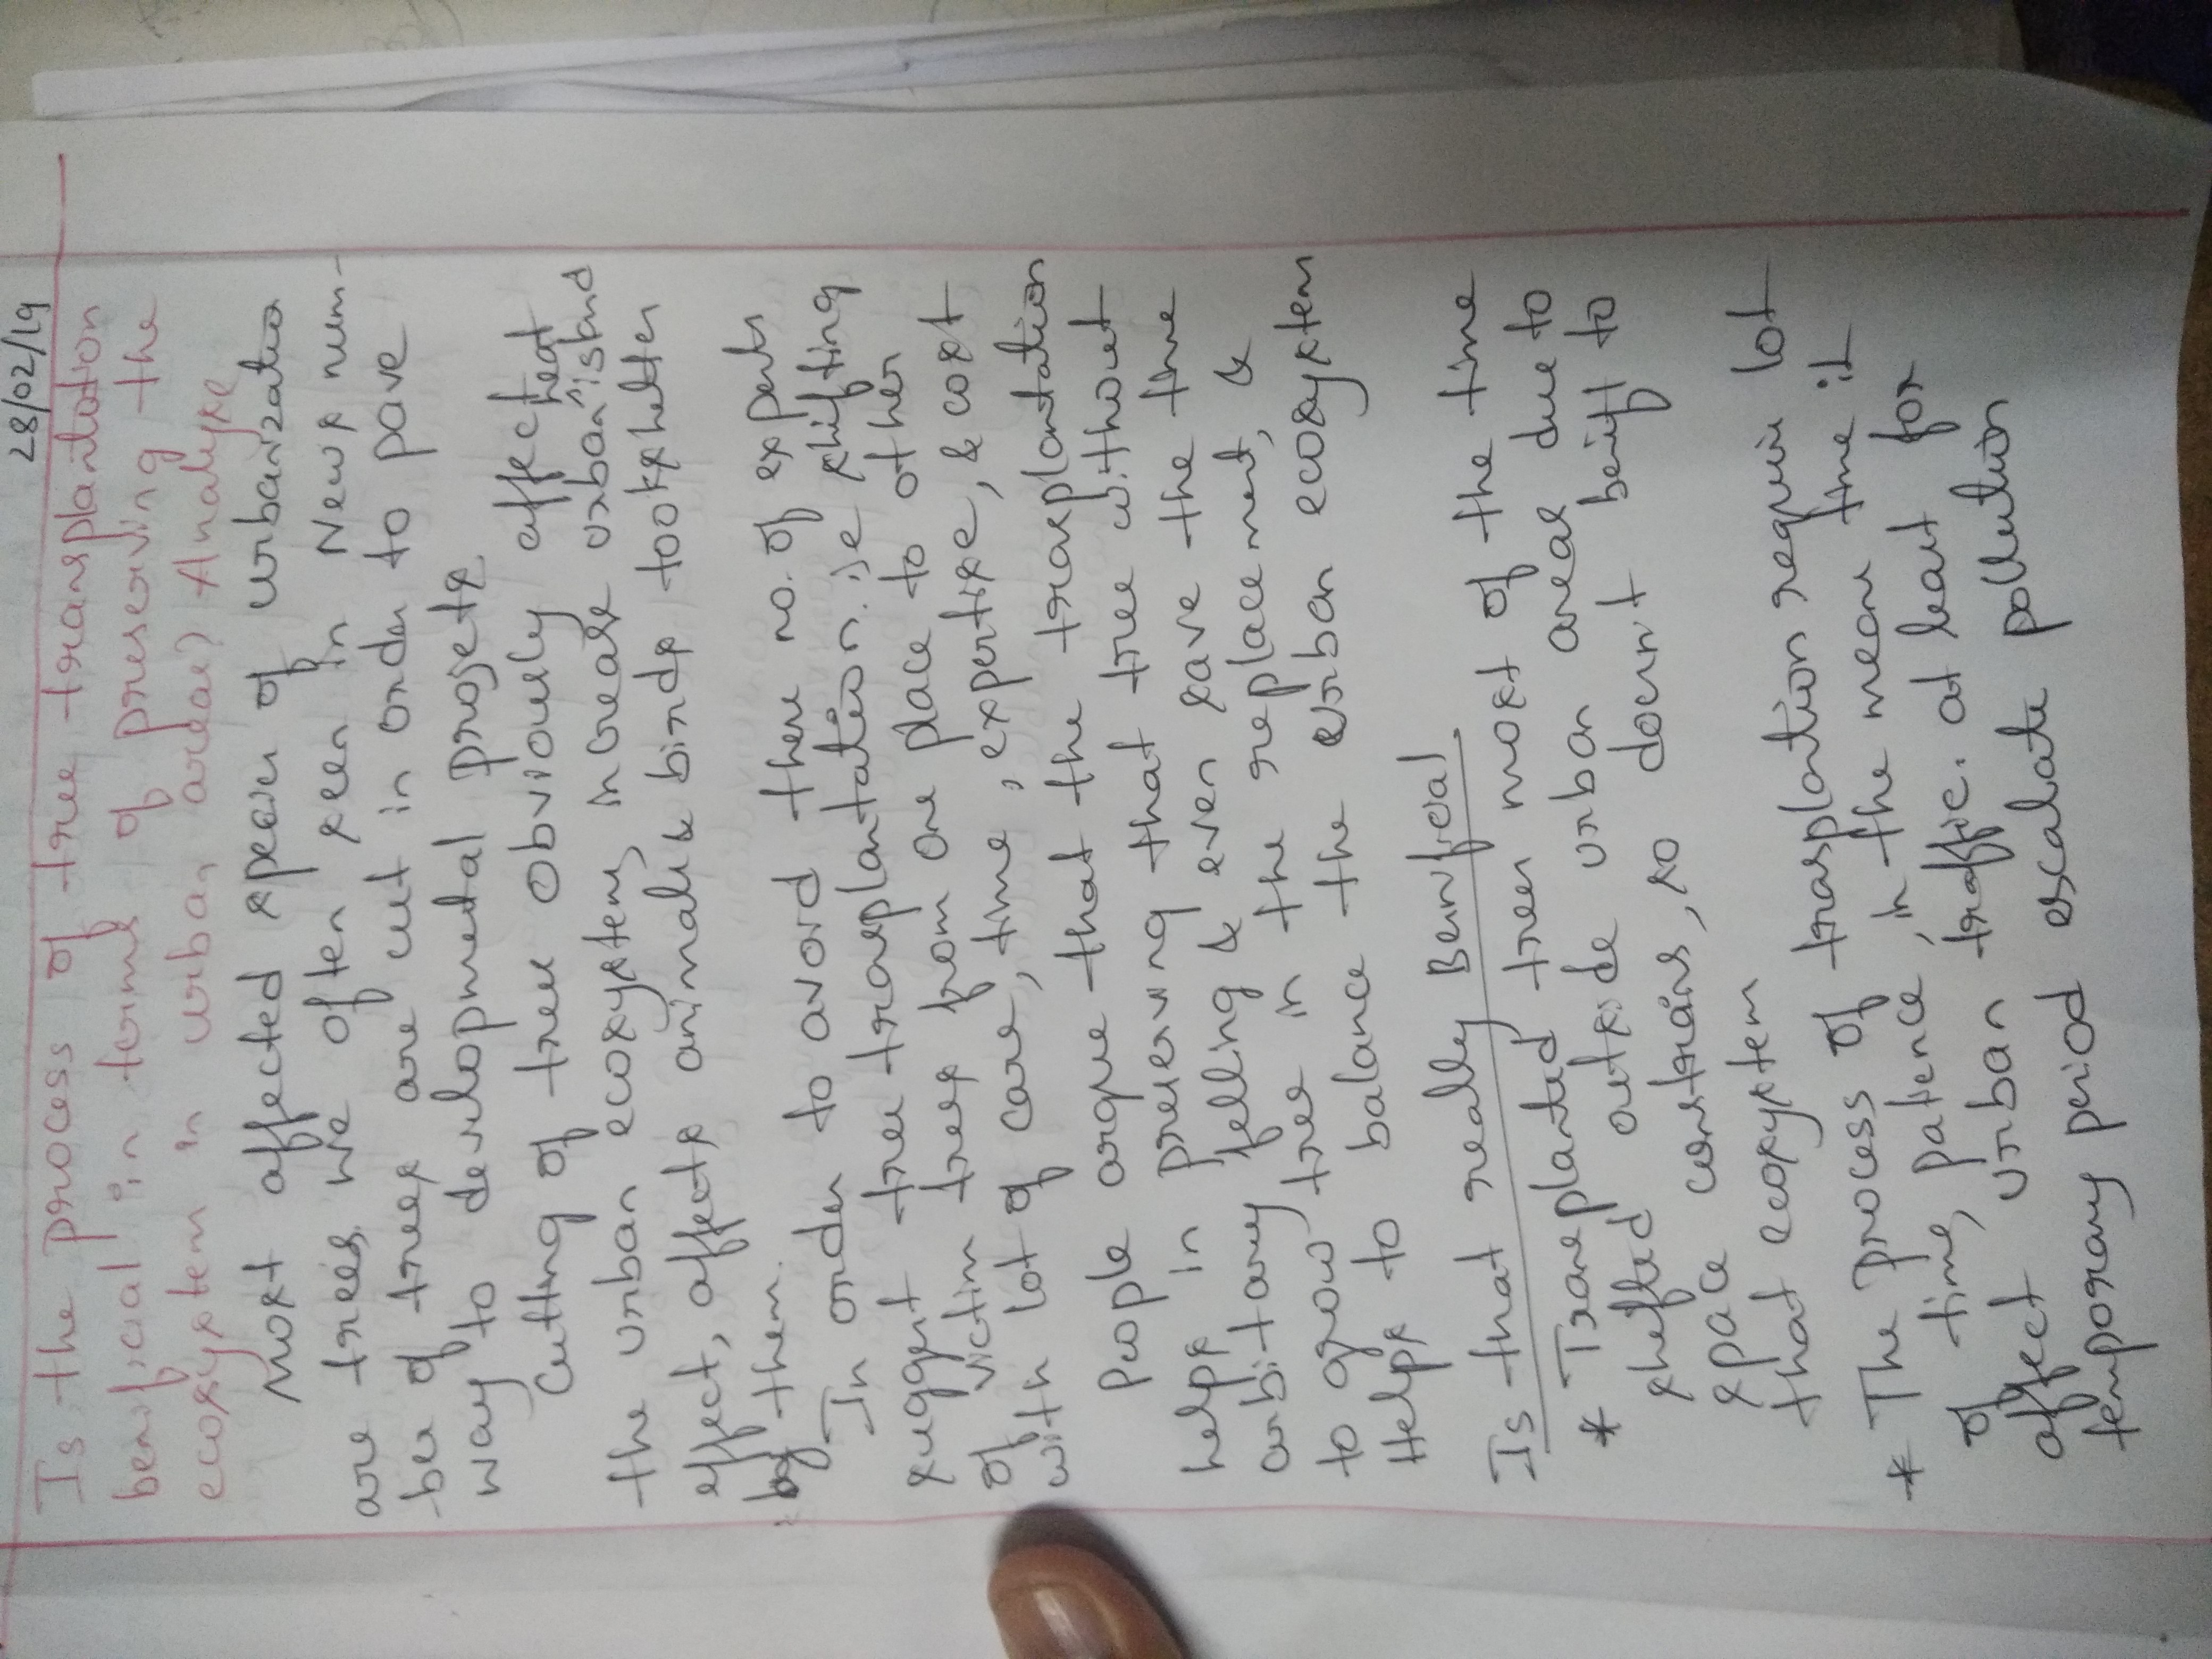 28/02/19
Is the process of tree transplantation
benificial in terms of preserving the
ecosystem in urban areas? Analyse
Most affected specis of urbanization
are trees. we often seen in News num-
-ber of trees are cut in order to pave
way to developmetal projets.
Cutting of trees obviously affect
the urban ecosystem, increase urban heat island
effect, affets animals & birds tooks shelter
by them.
In order to avoid there no. of experts
suggest tree transplantation. ie shifting
of victim trees from one place to other
with lot of care, time, expertise, & cost
People argue that the transplantation
helps in preserving that tree without
arbitary felling & even save the time
to grow tree in the replacement, &
Helps to balance the urban ecosystem
Is that really Benificial
* Transplanted trees most of the time
shifted outside urban areas due to
space constrains, so doesn't benift to
that ecosystem
* The process of transplantion requie lot
of time, patience, in the mean time it
affect urban traffic. at least for
temporary period escalate pollution